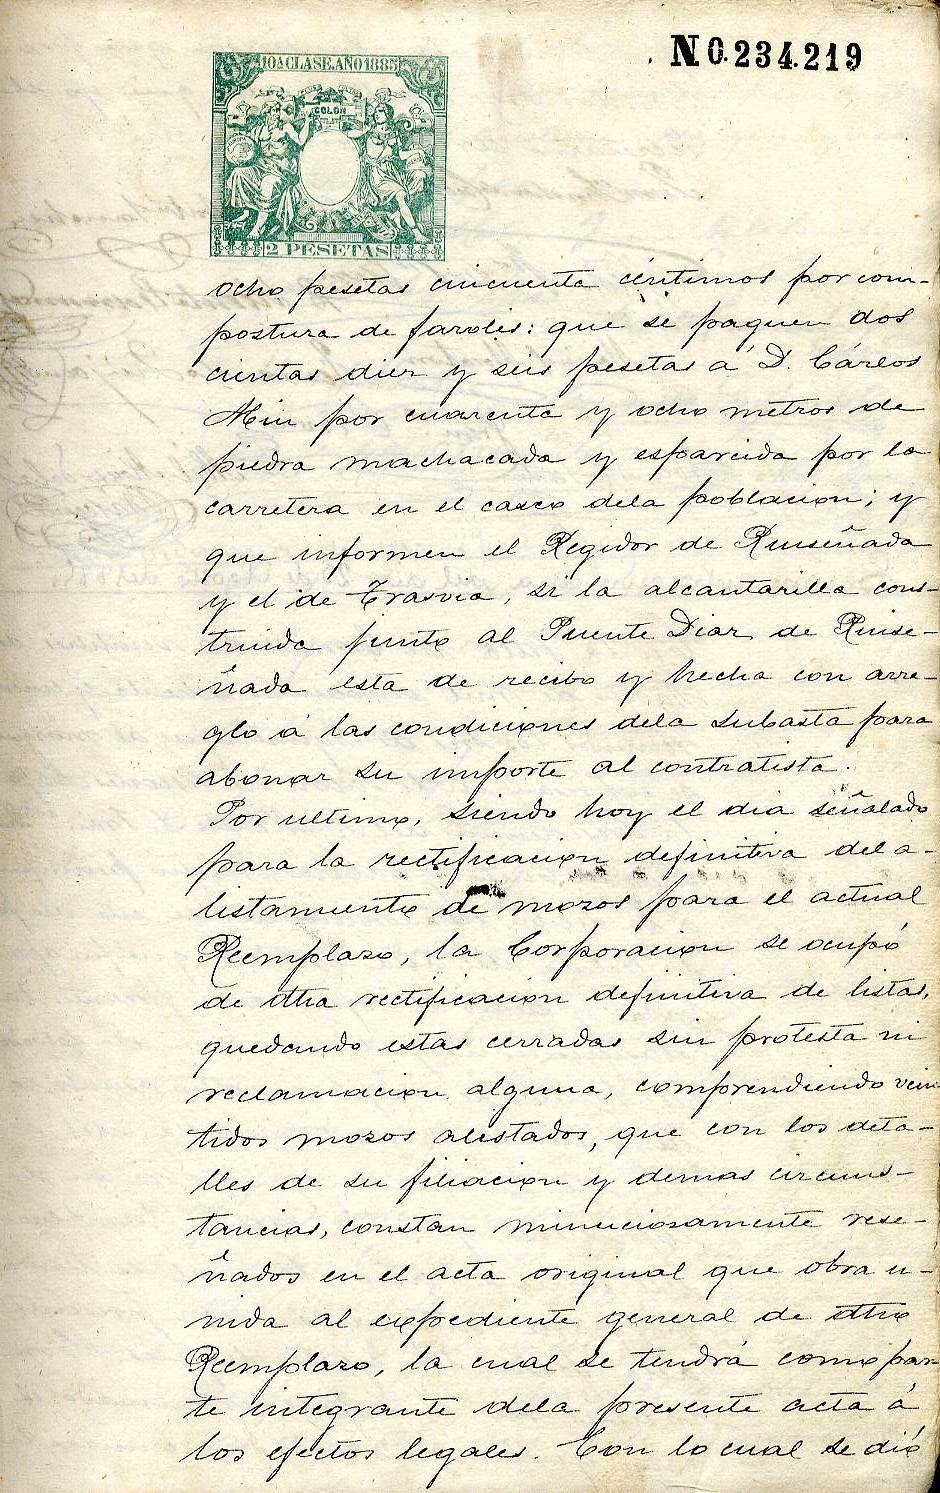 N 0.234.219
10ª CLASE. AÑO 1885
COLON
2 PESETAS
ocho pesetas cincuenta céntimos por com-
postura de faroles: que se paguen dos
cientas diez y seis pesetas á D. Cárlos
Min por cuarenta y ocho metros de
piedra machacada y esparcida por la
carretera en el casco dela poblacion; y
que informen el Regidor de Ruiseñada
y el de Trasvia, si la alcantarilla cons-
truida junto al Puente Diaz de Ruise-
ñada esta de recibo y hecha con arre-
glo á las condiciones dela subasta para
abonar su importe al contratista.
Por ultimo, siendo hoy el dia señalado
para la rectificacion definitiva del a-
listamiento de mozos para el actual
Reemplazo, la Corporacion se ocupó
de dha rectificacion definitiva de listas,
quedando estas cerradas sin protesta ni
reclamacion alguna, comprendiendo vein
tidos mozos alistados, que con los deta-
lles de su filiacion y demas circuns-
tancias, constan minuciosamente rese-
ñados en el acta original que obra u-
nida al expediente general de dho
Reemplazo, la cual se tendrá como par
te integrante dela presente acta á
los efectos legales. Con lo cual se dió